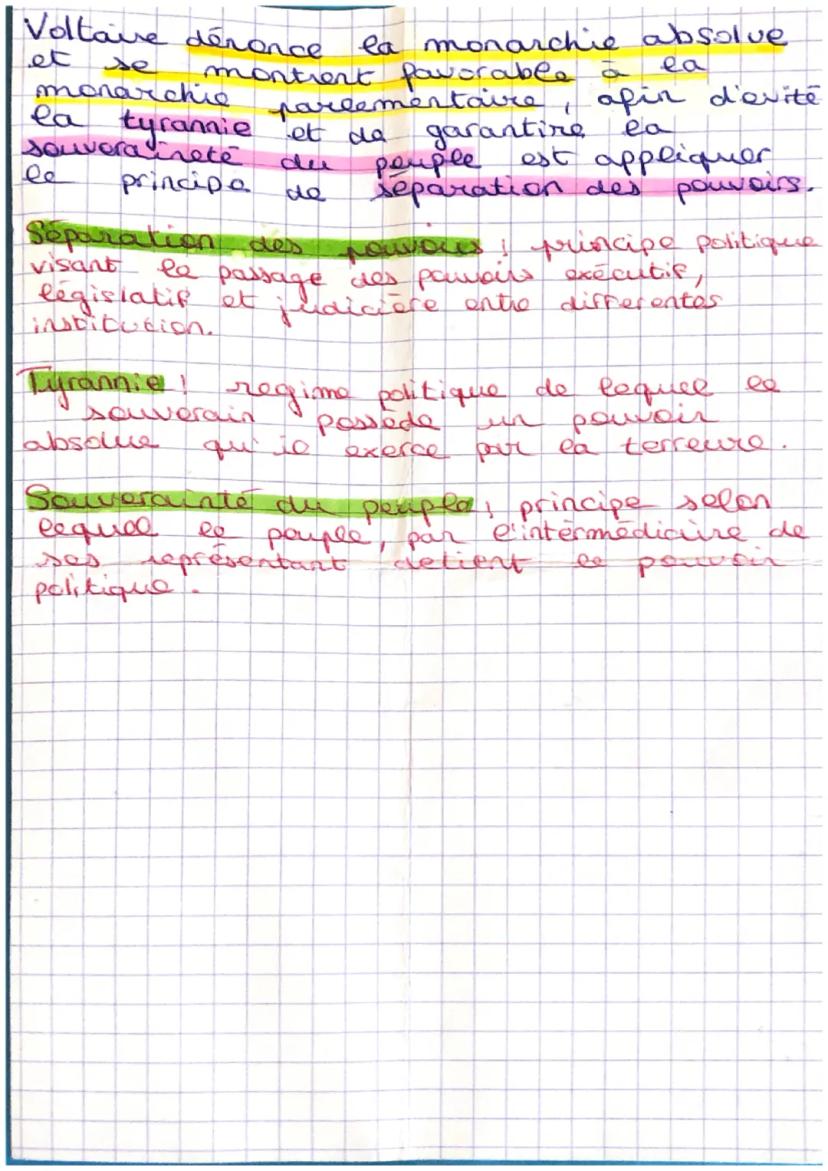 Voltaire dénonce la monarchie absolue
et se montrent favorable à la
monarchie parlementaire, afin d'evité
la tyrannie et de garantire la
souveraineté du peuple est appliquer
le principe de séparation des pouvoirs.
Séparation des pouvoirs : principe politique
visant le passage des pouvoirs exécutif,
législatif et judicière entre differentes
institution.
Tyrannie : regime politique de lequel le
souverain possède un pouvoir
absolue qu'il exerce par la terreure.
Souverainté du peuple : principe selon
lequel le peuple, par l'intérmédiaire de
ses représentant detient le pouvoir
politique.